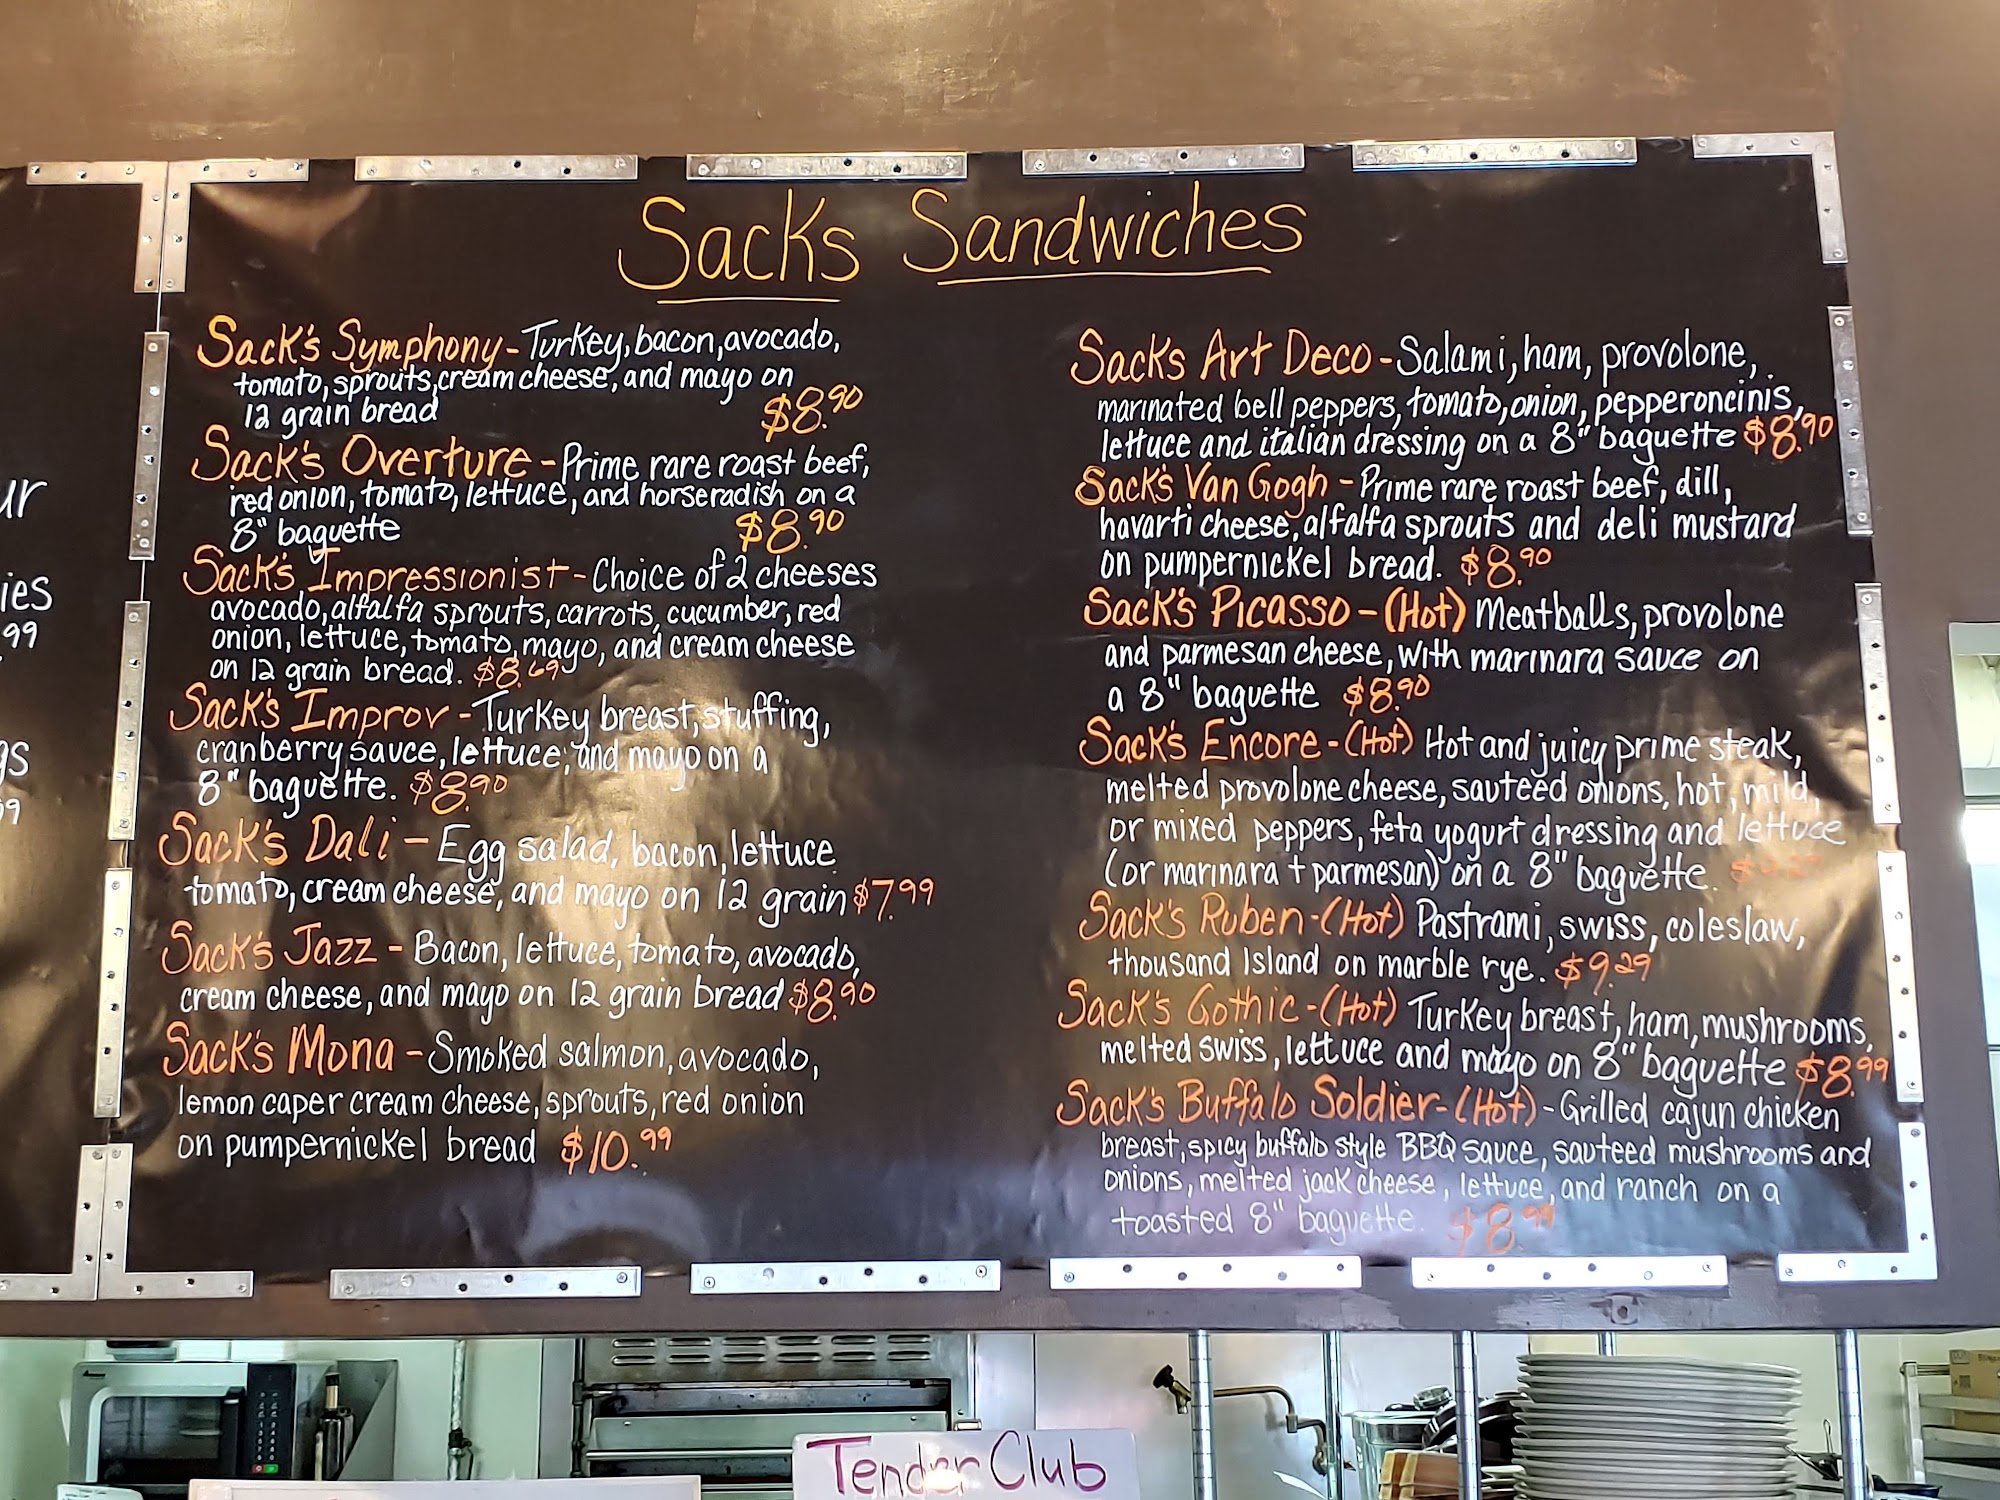 Sacks Sandwiches
Sack's Symphony - Turkey, bacon, avocado,
tomato, sprouts, cream cheese, and mayo on
12 grain bread $8.90
Sack's Overture - Prime rare roast beef,
red onion, tomato, lettuce, and horseradish on a
8" baguette $8.90
Sack's Impressionist - Choice of 2 cheeses
avocado, alfalfa sprouts, carrots, cucumber, red
onion, lettuce, tomato, mayo, and cream cheese
on 12 grain bread. $8.69
Sack's Improv - Turkey breast, stuffing,
cranberry sauce, lettuce, and mayo on a
8" baguette. $8.90
Sack's Dali - Egg salad, bacon, lettuce
tomato, cream cheese, and mayo on 12 grain $7.99
Sack's Jazz - Bacon, lettuce, tomato, avocado,
cream cheese, and mayo on 12 grain bread $8.90
Sack's Mona - Smoked salmon, avocado,
lemon caper cream cheese, sprouts, red onion
on pumpernickel bread $10.99
Sacks Art Deco - Salami, ham, provolone,
marinated bell peppers, tomato, onion, pepperoncinis,
lettuce and italian dressing on a 8" baguette $8.90
Sack's Van Gogh - Prime rare roast beef, dill,
havarti cheese, alfalfa sprouts and deli mustard
on pumpernickel bread. $8.90
Sack's Picasso - (Hot) Meatballs, provolone
and parmesan cheese, with marinara sauce on
a 8" baguette $8.90
Sack's Encore - (Hot) Hot and juicy prime steak,
melted provolone cheese, sauteed onions, hot, mild,
or mixed peppers, feta yogurt dressing and lettuce
(or marinara + parmesan) on a 8" baguette.
Sack's Ruben - (Hot) Pastrami, swiss, coleslaw,
thousand Island on marble rye. $9.29
Sack's Gothic - (Hot) Turkey breast, ham, mushrooms,
melted swiss, lettuce and mayo on 8" baguette $8.99
Sack's Buffalo Soldier - (Hot) - Grilled cajun chicken
breast, spicy buffalo style BBQ sauce, sauteed mushrooms and
onions, melted jack cheese, lettuce, and ranch on a
toasted 8" baguette. $8.99
ur
ies
.99
gs
99
Tender Club